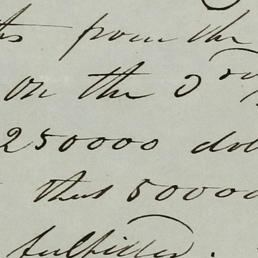 from the
on the 3rd
250000 dol
thus 50000
fulfilled.